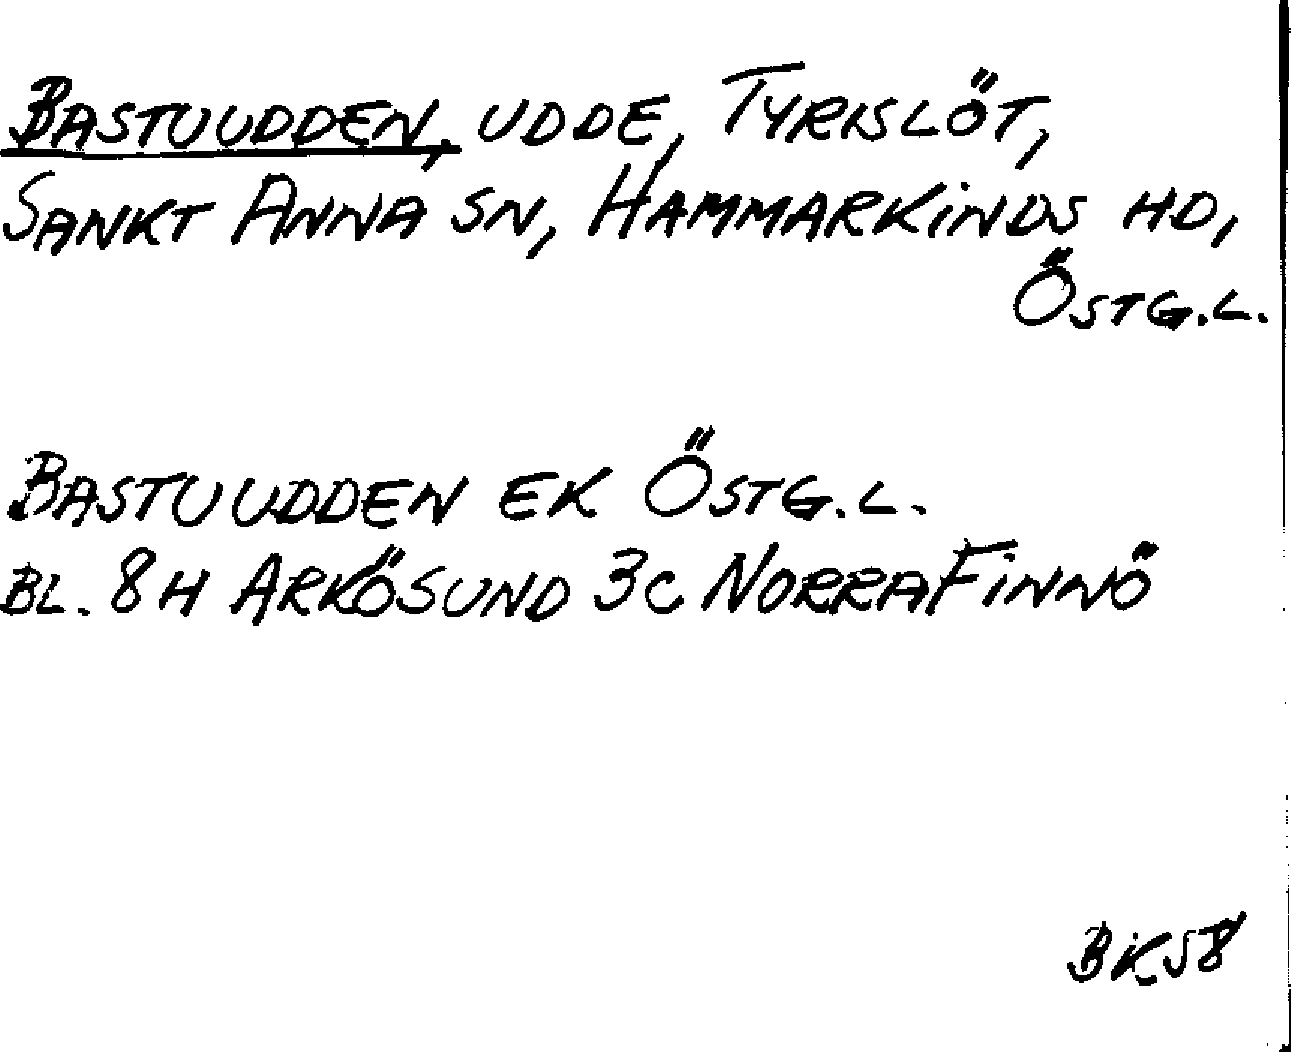 BASTUUDDEN, UDDE, TYRISLÖT,
SANKT ANNA SN, HAMMARKINDS HD,
ÖSTG.L.
BASTUUDDEN EK ÖSTG.L.
BL. 8H ARKÖSUND 3C NORRA FINNÖ
BK58